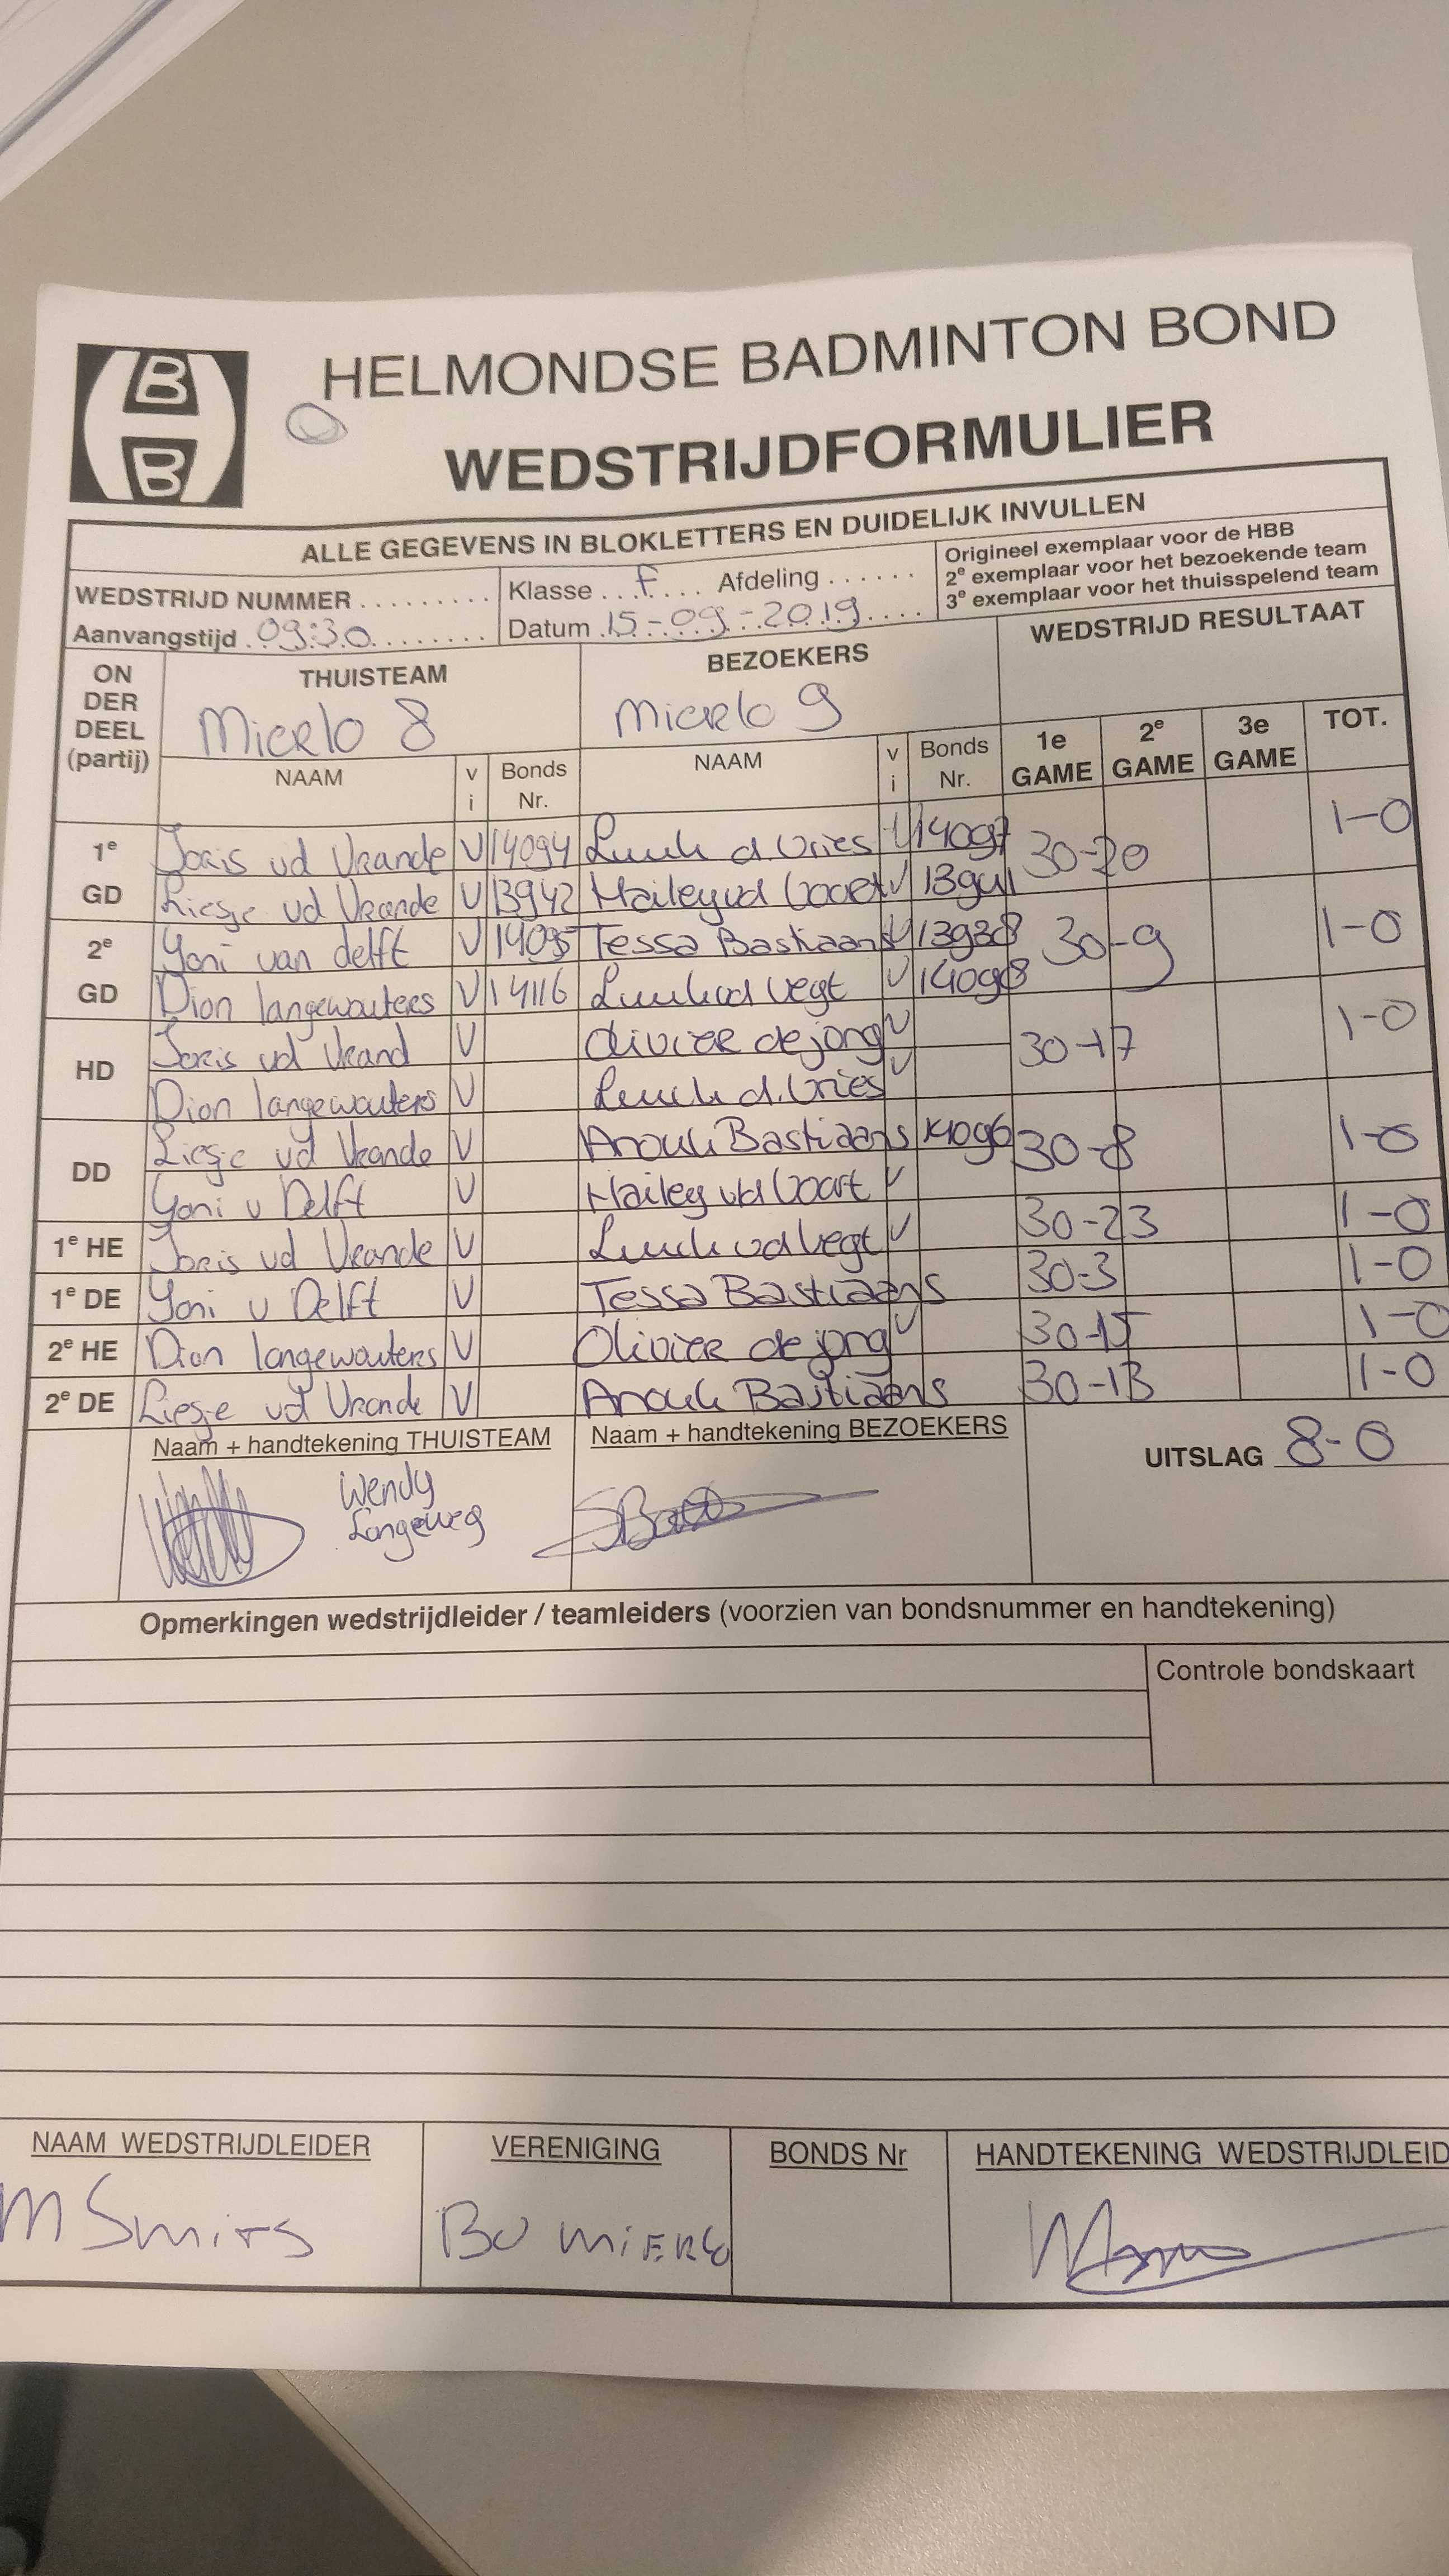 B
B
HELMONDSE BADMINTON BOND
WEDSTRIJDFORMULIER
ALLE GEGEVENS IN BLOKLETTERS EN DUIDELIJK INVULLEN
WEDSTRIJD NUMMER .........
Klasse ... F .... Afdeling ......
Origineel exemplaar voor de HBB
2e exemplaar voor het bezoekende team
3e exemplaar voor het thuisspelend team
Aanvangstijd . 09:30 ........
Datum . 15-09-2019 ....
WEDSTRIJD RESULTAAT
ON DER DEEL (partij)
THUISTEAM
Mierlo 8
BEZOEKERS
Mierlo 9
NAAM v i Bonds Nr. NAAM v i Bonds Nr. 1e GAME 2e GAME 3e GAME TOT.
1e GD Joris vd Vrande V 14094 Luuk d. Vries V 14097 30-20 1-0
Liesje vd Vrande V 13942 Hailey vd Voort V 13941
2e GD Yoni van delft V 14095 Tessa Bastiaans V 13938 30-9 1-0
Dion langewouters V 14116 Luuk vd Vegt V 14098
HD Joris vd Vrand V Olivier de jong V 30-17 1-0
Dion langewouters V Luuk d. Vries V
DD Liesje vd Vrande V Anouk Bastiaans 14096 30-8 1-0
Yoni v Delft V Hailey vd Voort V
1e HE Joris vd Vrande V Luuk vd Vegt V 30-23 1-0
1e DE Yoni v Delft V Tessa Bastiaans 30-3 1-0
2e HE Dion langewouters V Olivier de jong V 30-15 1-0
2e DE Liesje vd Vrande V Anouk Bastiaans 30-13 1-0
Naam + handtekening THUISTEAM
Naam + handtekening BEZOEKERS
UITSLAG 8-0
Wendy
Langeweg
Opmerkingen wedstrijdleider / teamleiders (voorzien van bondsnummer en handtekening)
Controle bondskaart
NAAM WEDSTRIJDLEIDER
VERENIGING
BONDS Nr
HANDTEKENING WEDSTRIJDLEID
M Smits
BV MiERLO